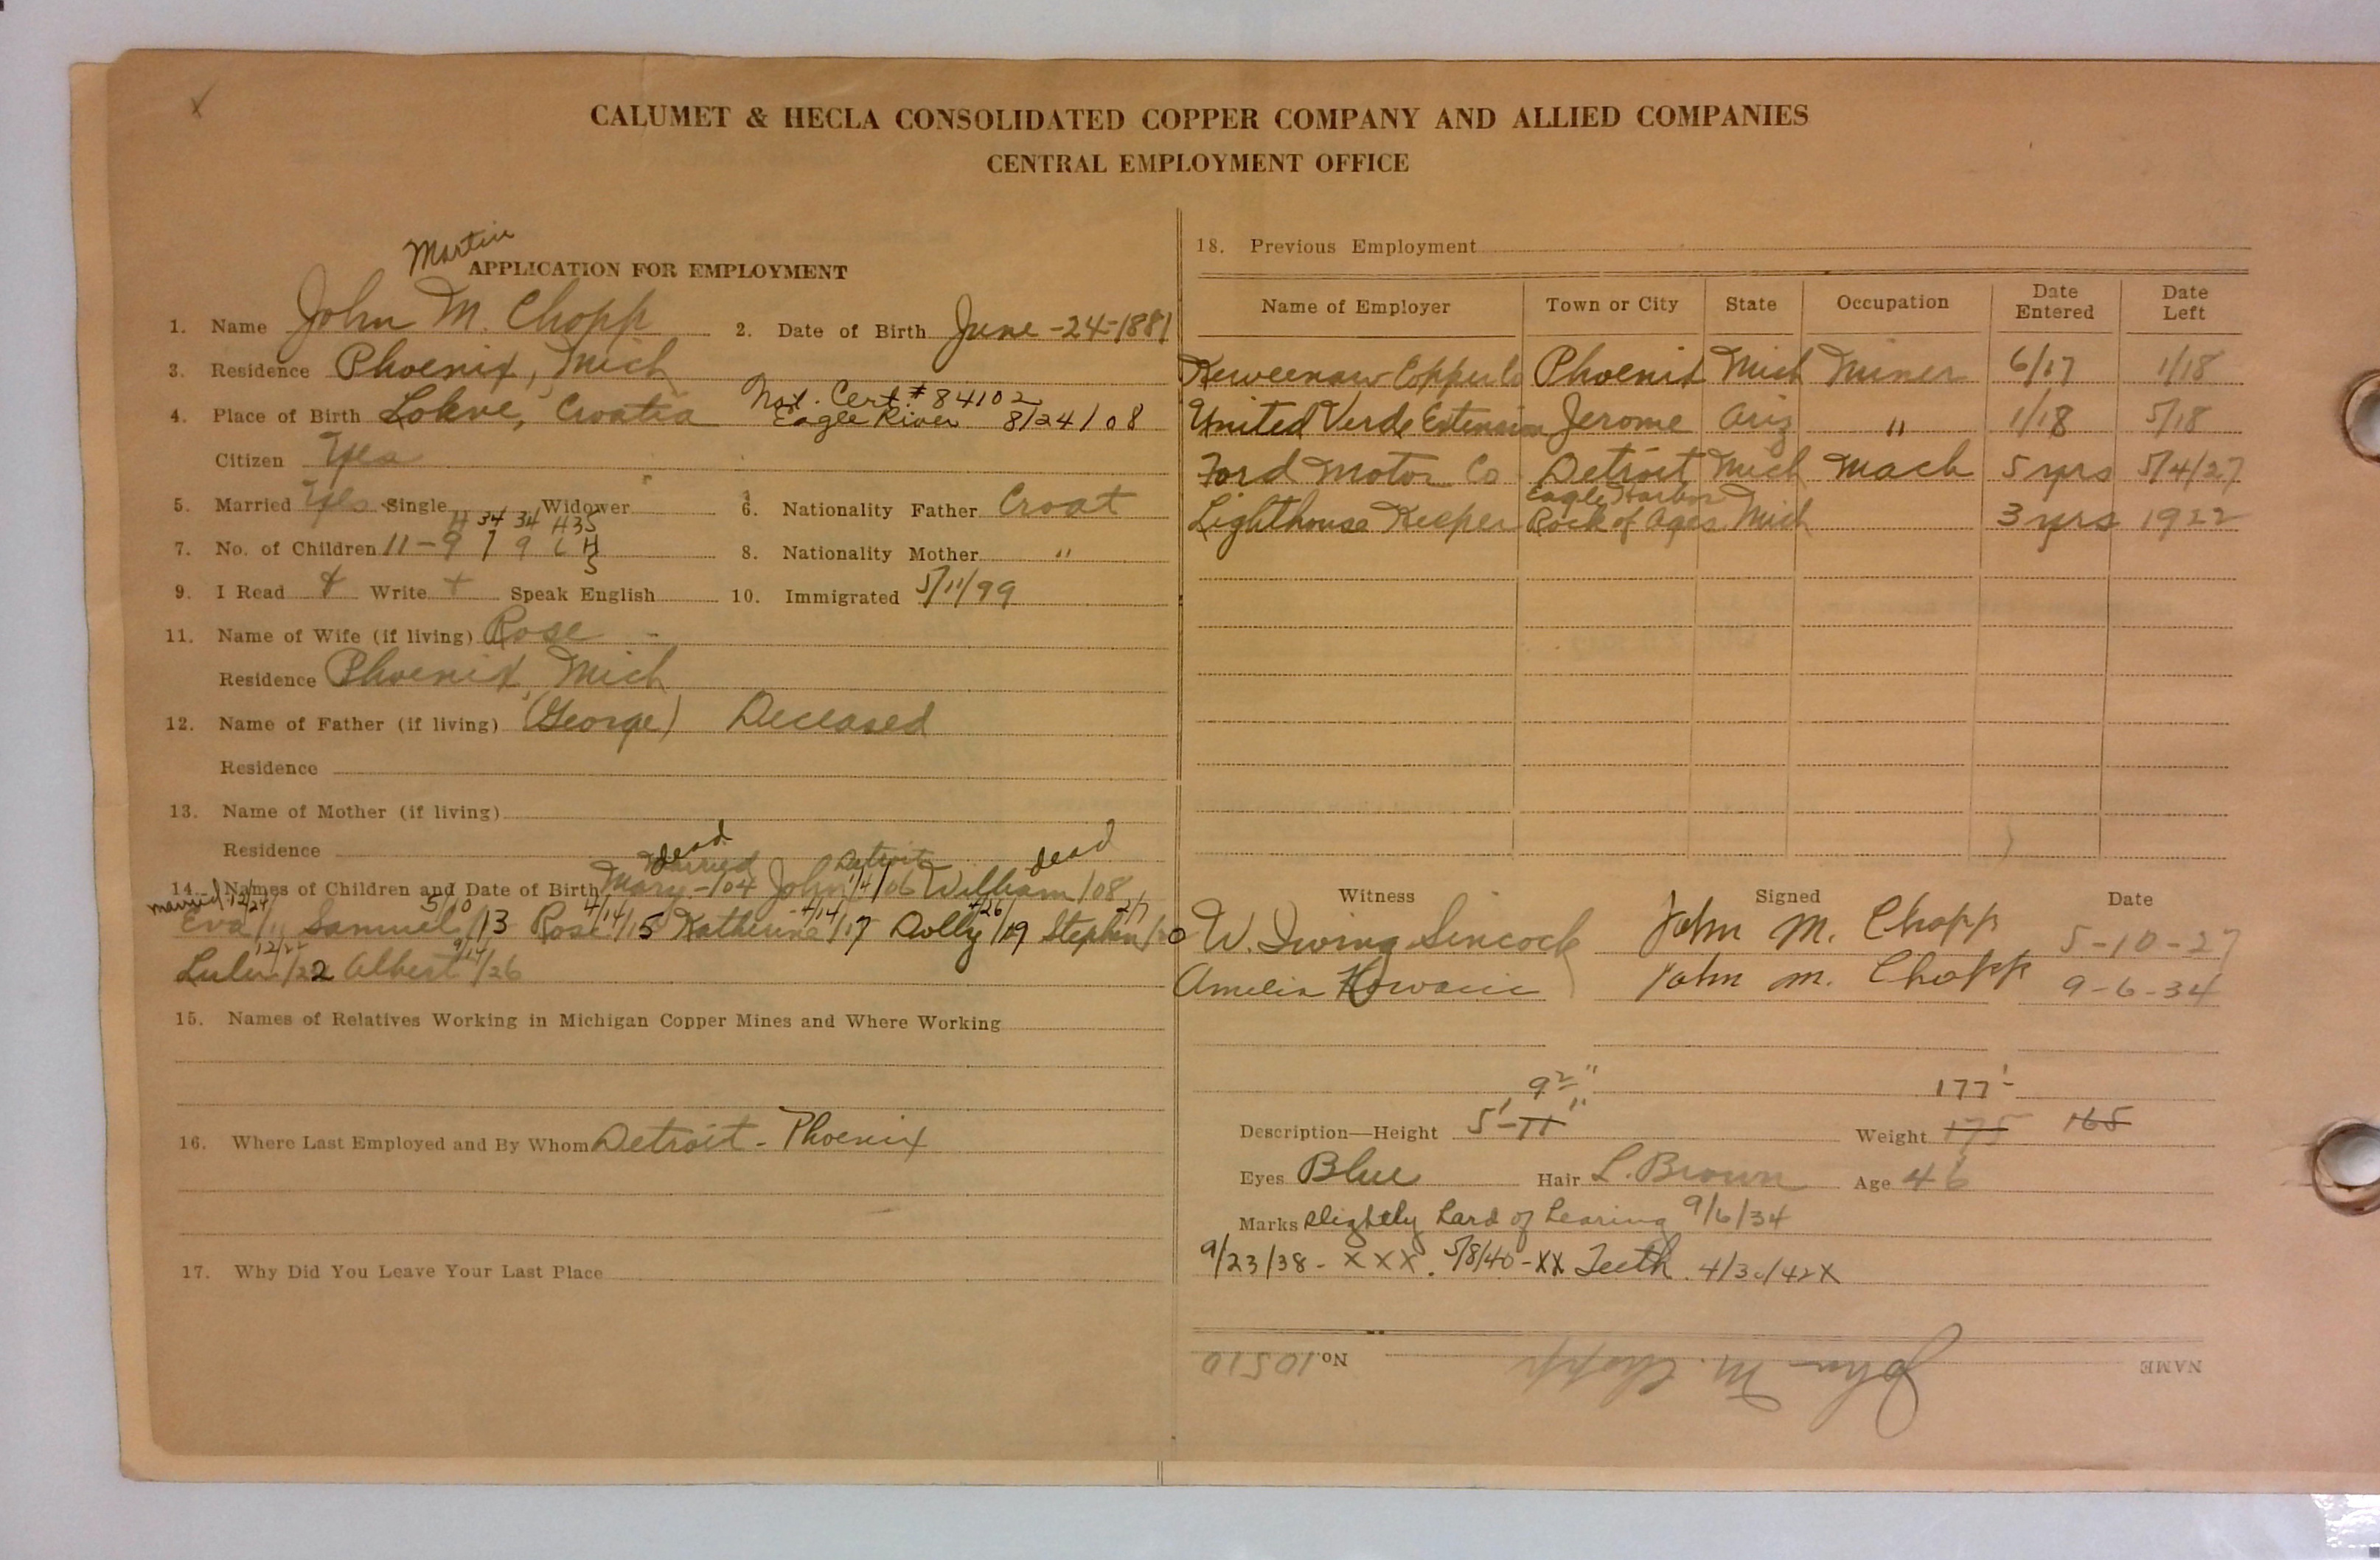 CALUMET & HECLA CONSOLIDATED COPPER COMPANY AND ALLIED COMPANIES
CENTRAL EMPLOYMENT OFFICE
Martin
APPLICATION FOR EMPLOYMENT
1. Name John M. Chopp 2. Date of Birth June-24-1881
3. Residence Phoenix, Mich
Nat. Cert. # 84102
4. Place of Birth Lokve, Croatia Eagle River 8/24/08
Citizen Yes
5. Married Yes Single Widower 6. Nationality Father Croat
34 34
7. No. of Children 11-9 7 9 6 8. Nationality Mother "
9. I Read + Write + Speak English 10. Immigrated 5/11/99
11. Name of Wife (if living) Rose
Residence Phoenix, Mich
12. Name of Father (if living) (George) Deceased
Residence
13. Name of Mother (if living)
Residence
dead dead
Married Detroit
14. Names of Children and Date of Birth Mary-/04 John 1/4/06 William /08
married 12/24 5/10 4/14 4/14 4/26 2/7
Eva /11 Samuel /13 Rose /15 Katherine /17 Dolly /19 Stephen /20
12/22 9/14
Lulu /22 Albert /26
15. Names of Relatives Working in Michigan Copper Mines and Where Working
16. Where Last Employed and By Whom Detroit - Phoenix
17. Why Did You Leave Your Last Place
18. Previous Employment
Name of Employer Town or City State Occupation Date Entered Date Left
Keweenaw Copper Co Phoenix Mich Miner 6/17 1/18
United Verde Extension Jerome Ariz " 1/18 5/18
Ford Motor Co Detroit Mich Mach 5 yrs 5/4/27
Eagle Harbor
Lighthouse Keeper Rock of Ages Mich 3 yrs 1922
Witness Signed Date
W. Irving Sincock John M. Chopp 5-10-27
Amelia John M. Chopp 9-6-34
9 2" 177
Description—Height 5'-11" Weight 175 165
Eyes Blue Hair L. Brown Age 46
Marks slightly hard of hearing 9/6/34
9/23/38 - XXX. 5/8/40 - XX Teeth. 4/30/42 X
NAME John M. Chopp No. 10510